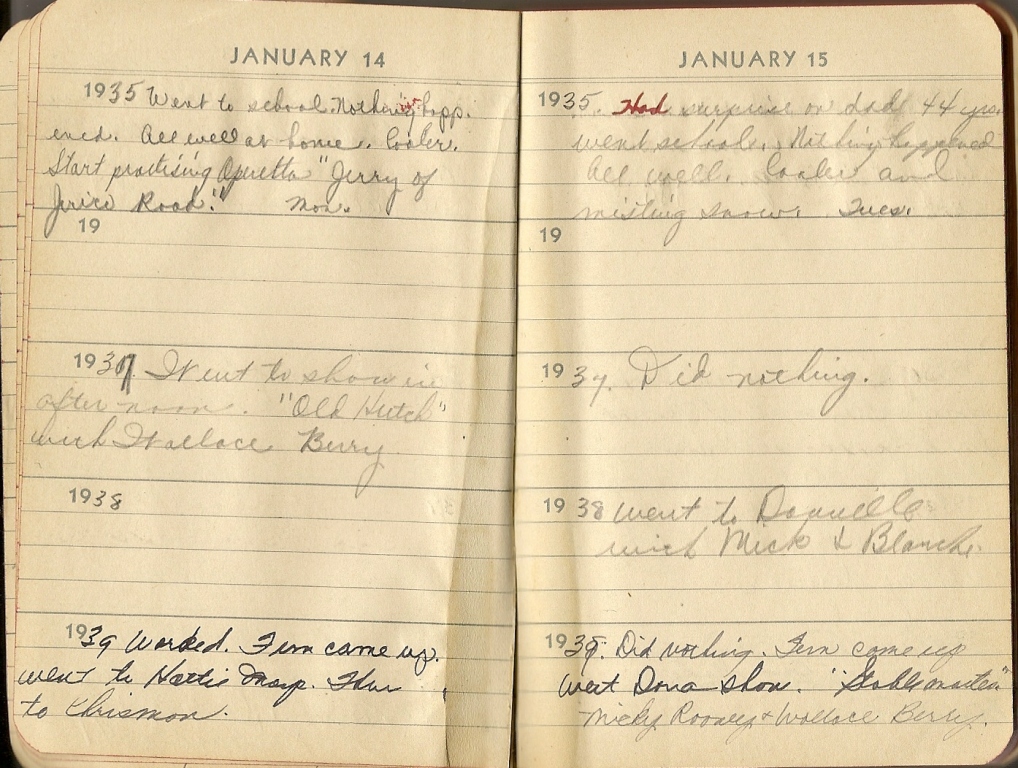 JANUARY 14
1935 Went to school. Nothing happ.
ened. All well at home. Cooler.
Start practising Operetta "Jerry of
Jerico Road." Mon.
19
1937. Went to show in
after-noon. "Old Hutch"
with Wallace Berry
1938
1939 Worked. Fern came up.
went to Hattie
to Chrisman.
JANUARY 15
1935. Had surprise on dad 44 yrs.
went school. Nothing happened
All well. Cooler and
misting snow. Tues.
19
1937. Did nothing.
1938 went to Danville
with Mick & Blanch.
1939. Did nothing. Fern came up
went Dana show. "Stablemates"
Micky Rooney & Wallace Berry.